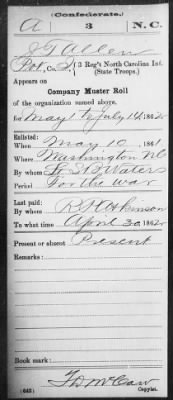 (Confederate.)
A 3 N.C.
J T Allen
Pvt, Co. I, 3 Reg't North Carolina Inf.
(State Troops.)
Appears on
Company Muster Roll
of the organization named above,
for May 1 to July 14, 1862.
Enlisted:
When May 10, 1861
Where Washington NC
By whom Waters
Period For the war
Last paid:
By whom R
To what time April 30, 1862
Present or absent Present
Remarks:
Book mark:
(642) Copyist.